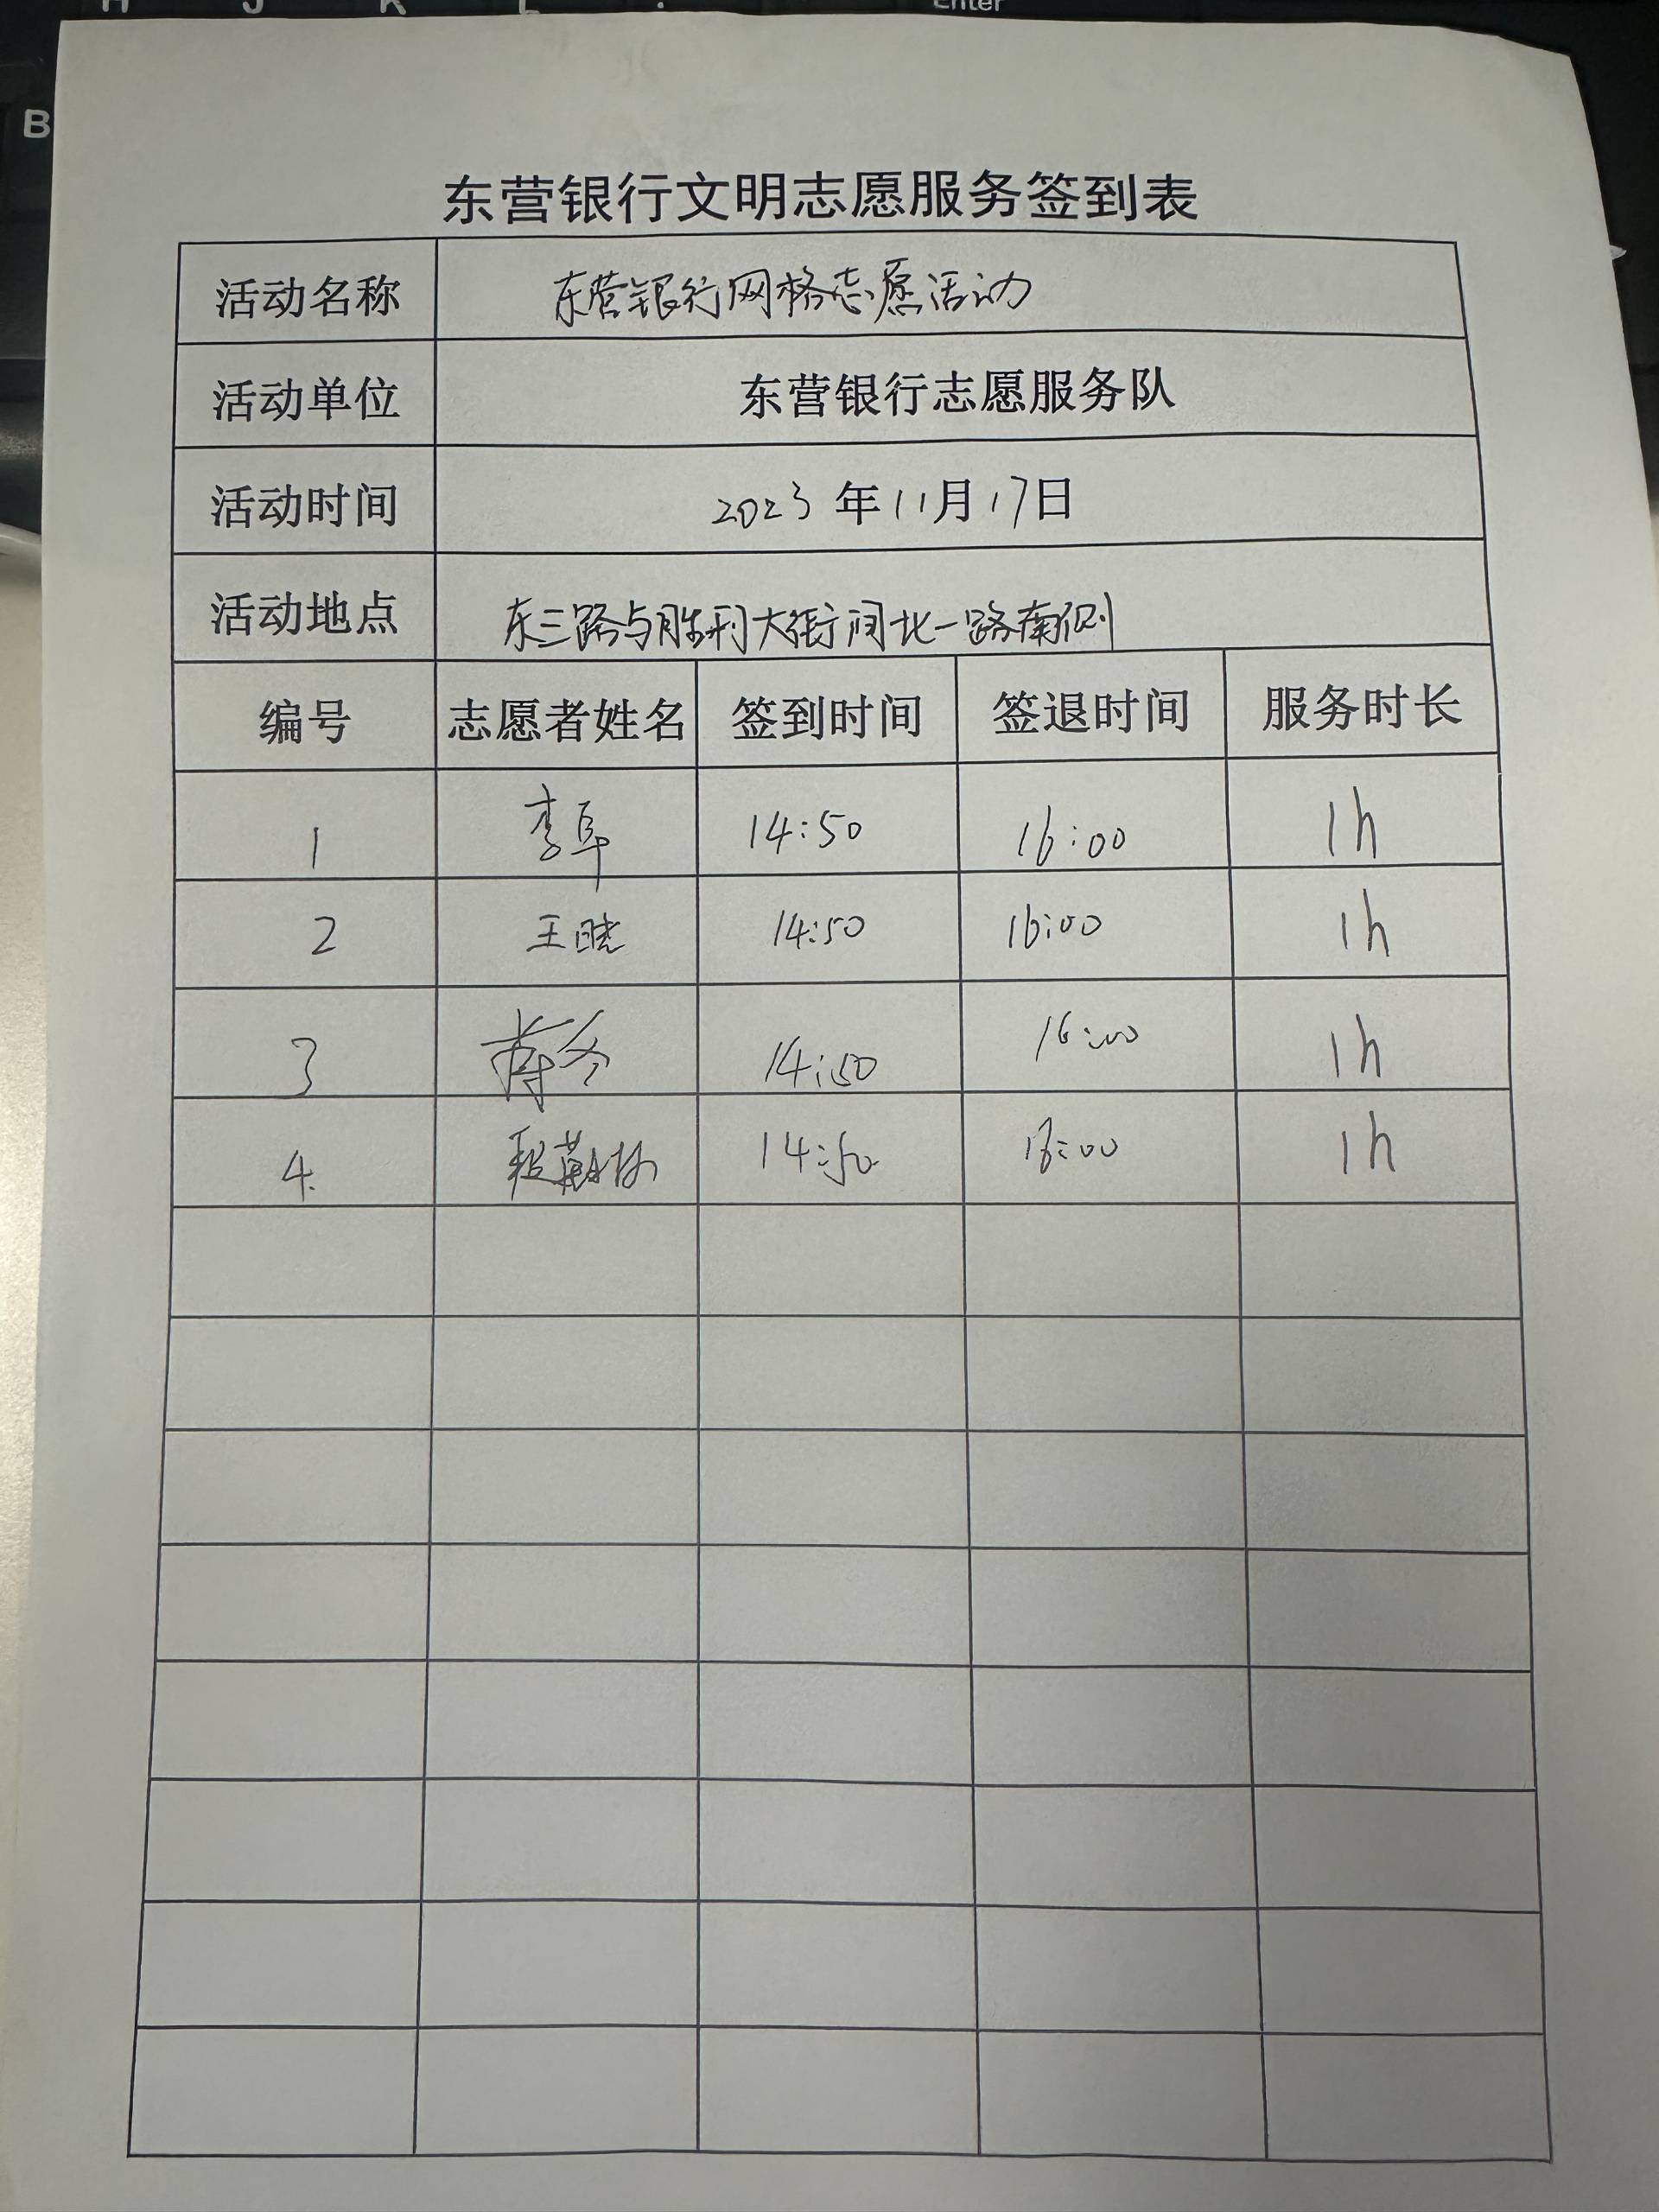 H J K L : Enter
B
东营银行文明志愿服务签到表
活动名称 东营银行网格志愿活动
活动单位 东营银行志愿服务队
活动时间 2023 年 11 月 17 日
活动地点 东三路与胜利大街间北一路南侧
编号 志愿者姓名 签到时间 签退时间 服务时长
1 李阜 14:50 16:00 1h
2 王晓 14:50 16:00 1h
3 14:50 16:00 1h
4. 14:50 16:00 1h